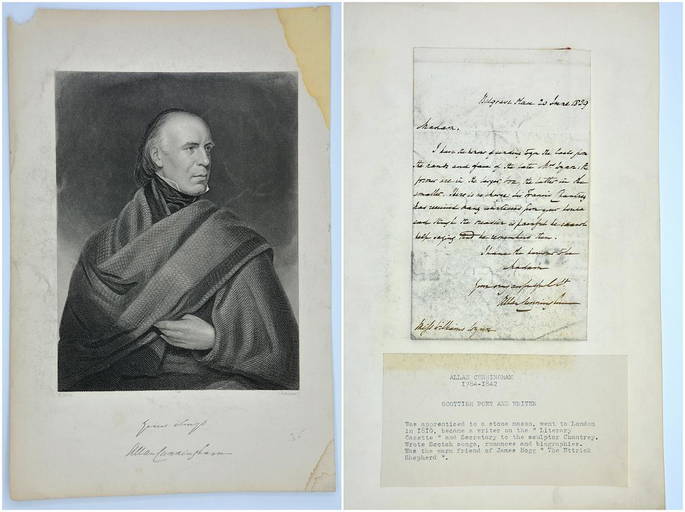 Yours truly
Allan Cunningham
Belgrave Place 20 June 1839
Madam,
I have the honor of sending you the casts from
the hands and face of the late Mrs. the
former are in the larger box, the latter in the
smaller. There is no charge Sir Francis Chantrey
has received many kindnesses from your house
and though the occasion is painful he cannot
help saying that he remembers them.
I have the honor to be
Madam
Your very respectful St
Allan Cunningham
Miss Williams Wynn
ALLAN CUNNINGHAM
1784-1842
SCOTTISH POET AND WRITER
Was apprenticed to a stone mason, went to London
in 1810, became a writer on the " Literary
Gazette " and Secretary to the sculptor Chantrey.
Wrote Scotch songs, romances and biographies.
Was the warm friend of James Hogg " The Ettrick
Shepherd ".